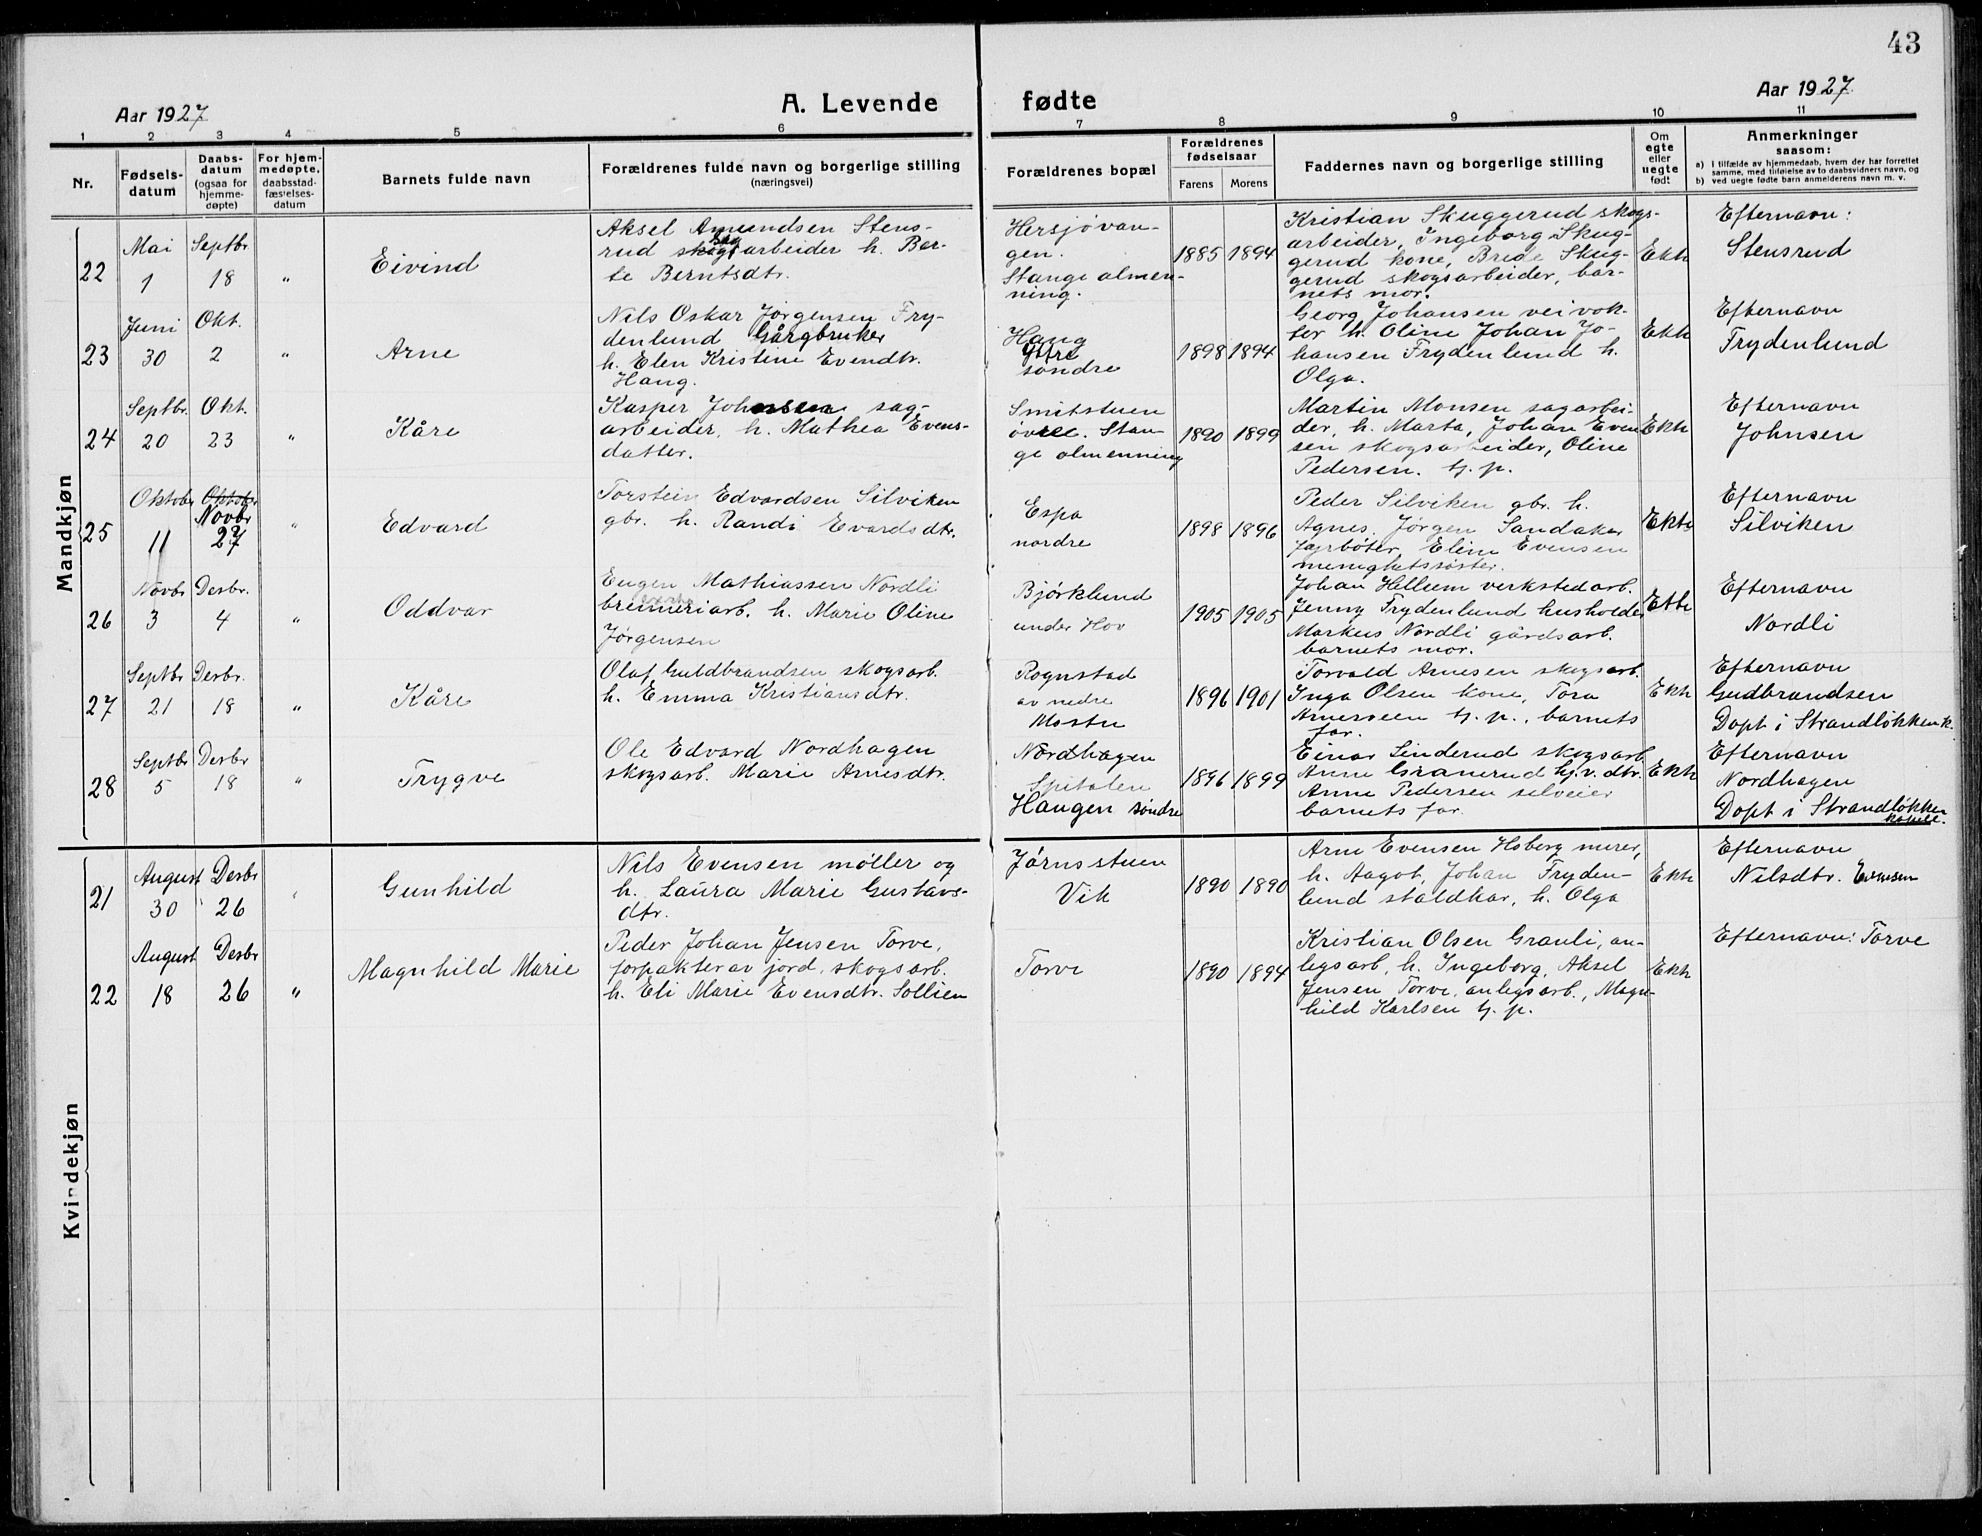 43
Aar 1927
A. Levende fødte
Aar 1927
1 2 3 4 5 6 7 8 9 10 11
Nr.
Fødsels-
datum
Daabs-
datum
(ogsaa for
hjemme-
døpte)
For hjem-
medøpte,
daabsstad-
fæstelses-
datum
Barnets fulde navn
Forældrenes fulde navn og borgerlige stilling
(næringsvei)
Forældrenes bopæl
Forældrenes
fødselsaar
Farens Morens
Faddernes navn og borgerlige stilling
Om
egte
eller
uegte
født
Anmerkninger
saasom:
a) I tilfælde av hjemmedaab, hvem der har forrettet
samme, med tilføielse av to daabsvidners navn, og
b) ved uegte fødte barn anmelderens navn m. v.
Mandkjøn
22
Mai
1
Septbr
18
"
Eivind
Aksel Amundsen Stens-
rud sagarbeider h. Ber-
te Berntsdtr.
Hersjøvan-
gen.
Stange almen-
ning.
1885 1894
Kristian Skuggerud skogs-
arbeider, Ingeborg Skug-
gerud kone, Brede Skug-
gerud skogsarbeider, bar-
nets mor.
Ekte
Efternavn:
Stensrud
23
Juni
30
Okt.
2
"
Arne
Nils Oskar Jørgensen Fry-
denlund Gårgbruker
h. Elen Kristine Evendtr.
Haug.
Haug
søndre
1898 1894
Georg Johansen veivok-
ter h. Oline Johan Jo-
hansen Frydenlund h.
Olga.
Ekte
Efternavn
Frydenlund
24
Septbr.
20
Okt.
23
"
Kåre
Kasper Johnsen sag-
arbeider, h. Mathea Evens-
datter.
Smitstuen
øvre. Stan-
ge almenning
1890 1899
Martin Monsen sagarbei-
der, h. Marta, Johan Even
sen skogsarbeider, Oline
Pedersen. hj. p.
Ekte
Efternavn
Johnsen
25
Oktobr
11
Oktobr
Novbr
27
"
Edvard
Torstein Edvardsen Silviken
gbr. h. Randi Evardsdtr.
Espa
nordre
1898 1896
Peder Silviken gbr. h.
Agnes, Jørgen Sandaker
fyrbøter, Eline Evensen
menighetssøster.
Ekte
Efternavn
Silviken
26
Novbr
3
Desbr.
4
"
Oddvar
Eugen Mathiassen Nordli
brenneriarb. h. Marie Oline
Jørgensen
Bjørklund
under Hov
1905 1905
Johan Hellum verkstedarb.
Jenny Frydenlund husholder
Markus Nordli gårdsarb.
barnets mor.
Ekte
Efternavn
Nordli
27
Septbr
21
Desbr.
18
"
Kåre
Olaf Guldbrandsen skogsarb.
h. Emma Kristiansdtr.
Rognstad
av nedre
Mostu
1896 1901
Torvald Arnesen skogsarb.
Inga Olsen kone, Tora
Arnesseen hj. p., barnets
far.
Ekte
Efternavn
Gudbrandsen
Døpt i Strandløkken k.
28
Septbr
5
Desbr
18
"
Trygve
Ole Edvard Nordhagen
skogsarb. Marie Arnesdtr.
Nordhagen
Spitalen
Haugen søndre
1896 1899
Einar Linderud skogsarb
Anne Granerud hj. v. dtr.
Anne Pedersen selveier
barnets far.
Ekte
Efternavn
Nordhagen
Døpt i Strandløkken
kapell.
Kvindekjøn
21
August
30
Desbr
26
"
Gunhild
Nils Evensen møller og
h. Laura Marie Gustavs-
dtr.
Jørnsstuen
Vik
1890 1890
Arne Evensen Hoberg murer,
h. Aagot, Johan Fryden-
lund staldkar, h. Olga
Ekte
Efternavn
Nilsdtr. Evensen
22
August
18
Desbr
26
"
Magnhild Marie
Peder Johan Jensen Torve,
forpakter av jord, skogsarb.
h. Eli Marie Evensdtr. Sollien
Torve
1890 1894
Kristian Olsen Granli, an-
legsarb, h. Ingeborg, Aksel
Jensen Torve, anlegsarb., Magn-
hild Karlsen hj. p.
Ekte
Efternavn: Torve